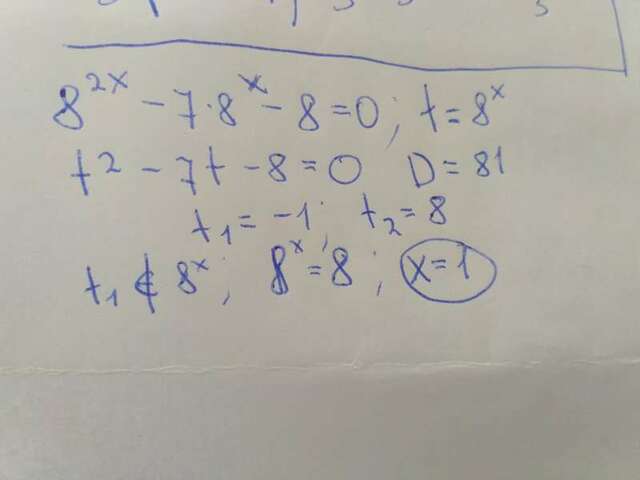 8^{2x} - 7·8^x - 8 = 0; t = 8^x
t² - 7t - 8 = 0 D = 81
t₁ = -1; t₂ = 8
t₁ ∉ 8^x; 8^x = 8; x = 1